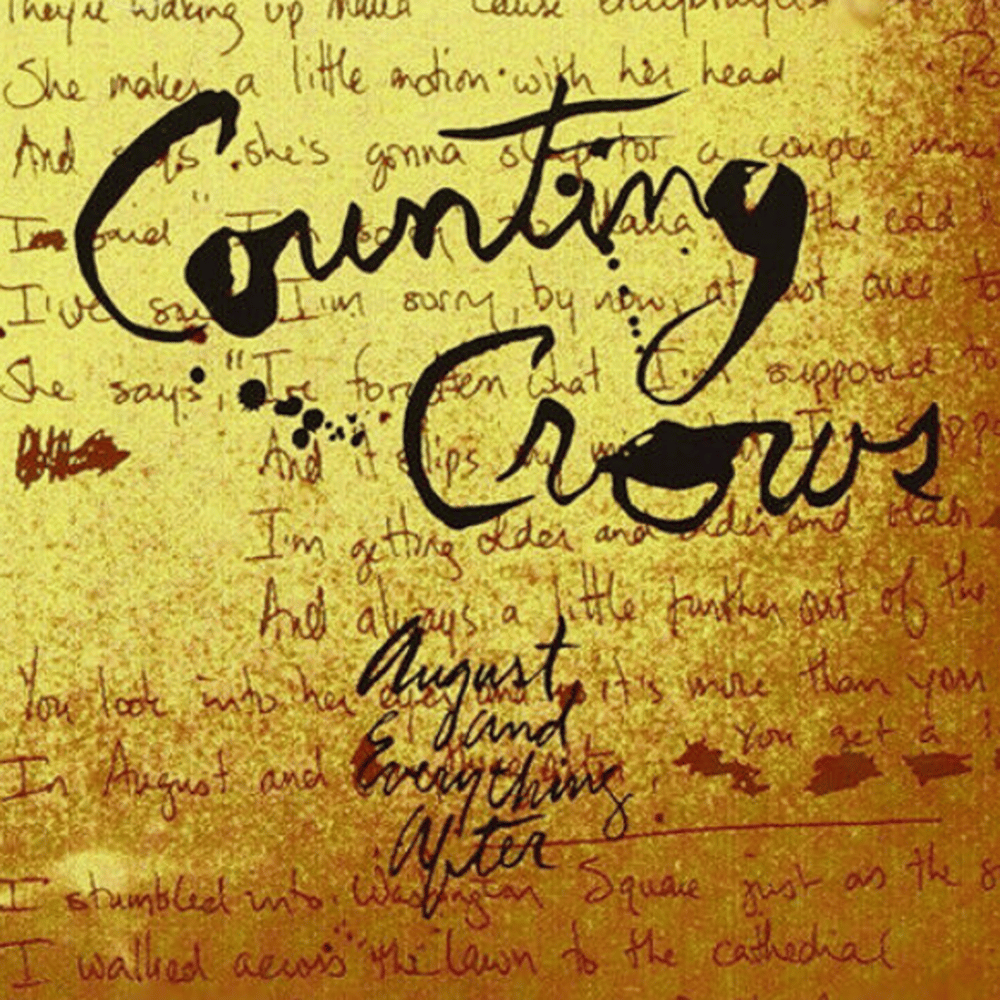 They're waking up Maria 'cause everybody's
She makes a little motion with her head
And says she's gonna sleep for a couple
Counting
I said "I'm sorry to Maria the cold
I've said I'm sorry, by now, at least once to
Crows
She says, "I've forgotten what I'm supposed to
And it slips my mind I'm
I'm getting older and older and older
And always a little further out of the
August
You look into her eyes and it's more than your
and
You get a
In August and
Everything
After
I stumbled into Washington Square just as the
I walked across the lawn to the cathedral